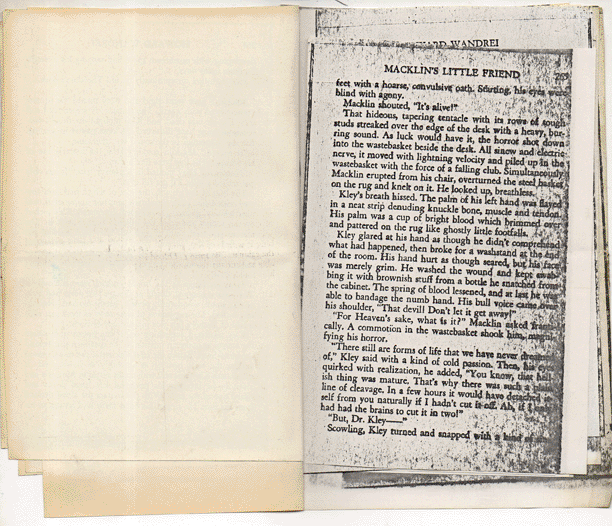 HARD WANDREI
MACKLIN'S LITTLE FRIEND
feet with a hoarse, convulsive oath. Starting, his eyes were
blind with agony.
Macklin shouted, "It's alive!"
That hideous, tapering tentacle with its rows of tough
studs streaked over the edge of the desk with a heavy, bur-
ring sound. As luck would have it, the horror shot down
into the wastebasket beside the desk. All sinew and electric
nerve, it moved with lightning velocity and piled up in the
wastebasket with the force of a falling club. Simultaneously
Macklin erupted from his chair, overturned the steel basket
on the rug and knelt on it. He looked up, breathless.
Kley's breath hissed. The palm of his left hand was flayed
in a neat strip denuding knuckle bone, muscle and tendon.
His palm was a cup of bright blood which brimmed over
and pattered on the rug like ghostly little footfalls.
Kley glared at his hand as though he didn't comprehend
what had happened, then broke for a washstand at the end
of the room. His hand hurt as though seared, but his face
was merely grim. He washed the wound and kept swab-
bing it with brownish stuff from a bottle he snatched from
the cabinet. The spring of blood lessened, and at last he was
able to bandage the numb hand. His bull voice came over
his shoulder, "That devil! Don't let it get away!"
"For Heaven's sake, what is it?" Macklin asked
cally. A commotion in the wastebasket shook him, magni-
fying his horror.
"There still are forms of life that we have never dreamed
of," Kley said with a kind of cold passion. Then, his eyes
quirked with realization, he added, "You know, that hell-
ish thing was mature. That's why there was such a
line of cleavage. In a few hours it would have detached it-
self from you naturally if I hadn't cut it off. Ah, if I only
had had the brains to cut it in two!"
"But, Dr. Kley——"
Scowling, Kley turned and snapped with a kind of